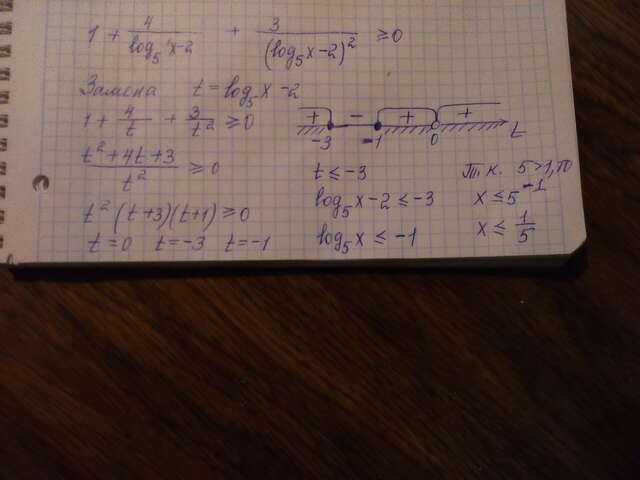 1 + 4/(log₅x-2) + 3/(log₅x-2)² ≥ 0
Замена t = log₅x - 2
1 + 4/t + 3/t² ≥ 0
(t² + 4t + 3)/t² ≥ 0
t²(t+3)(t+1) ≥ 0
t=0 t=-3 t=-1
+ - + +
-3 -1 0 t
t ≤ -3
log₅x - 2 ≤ -3
log₅x ≤ -1
Т.к. 5>1, то
x ≤ 5⁻¹
x ≤ 1/5